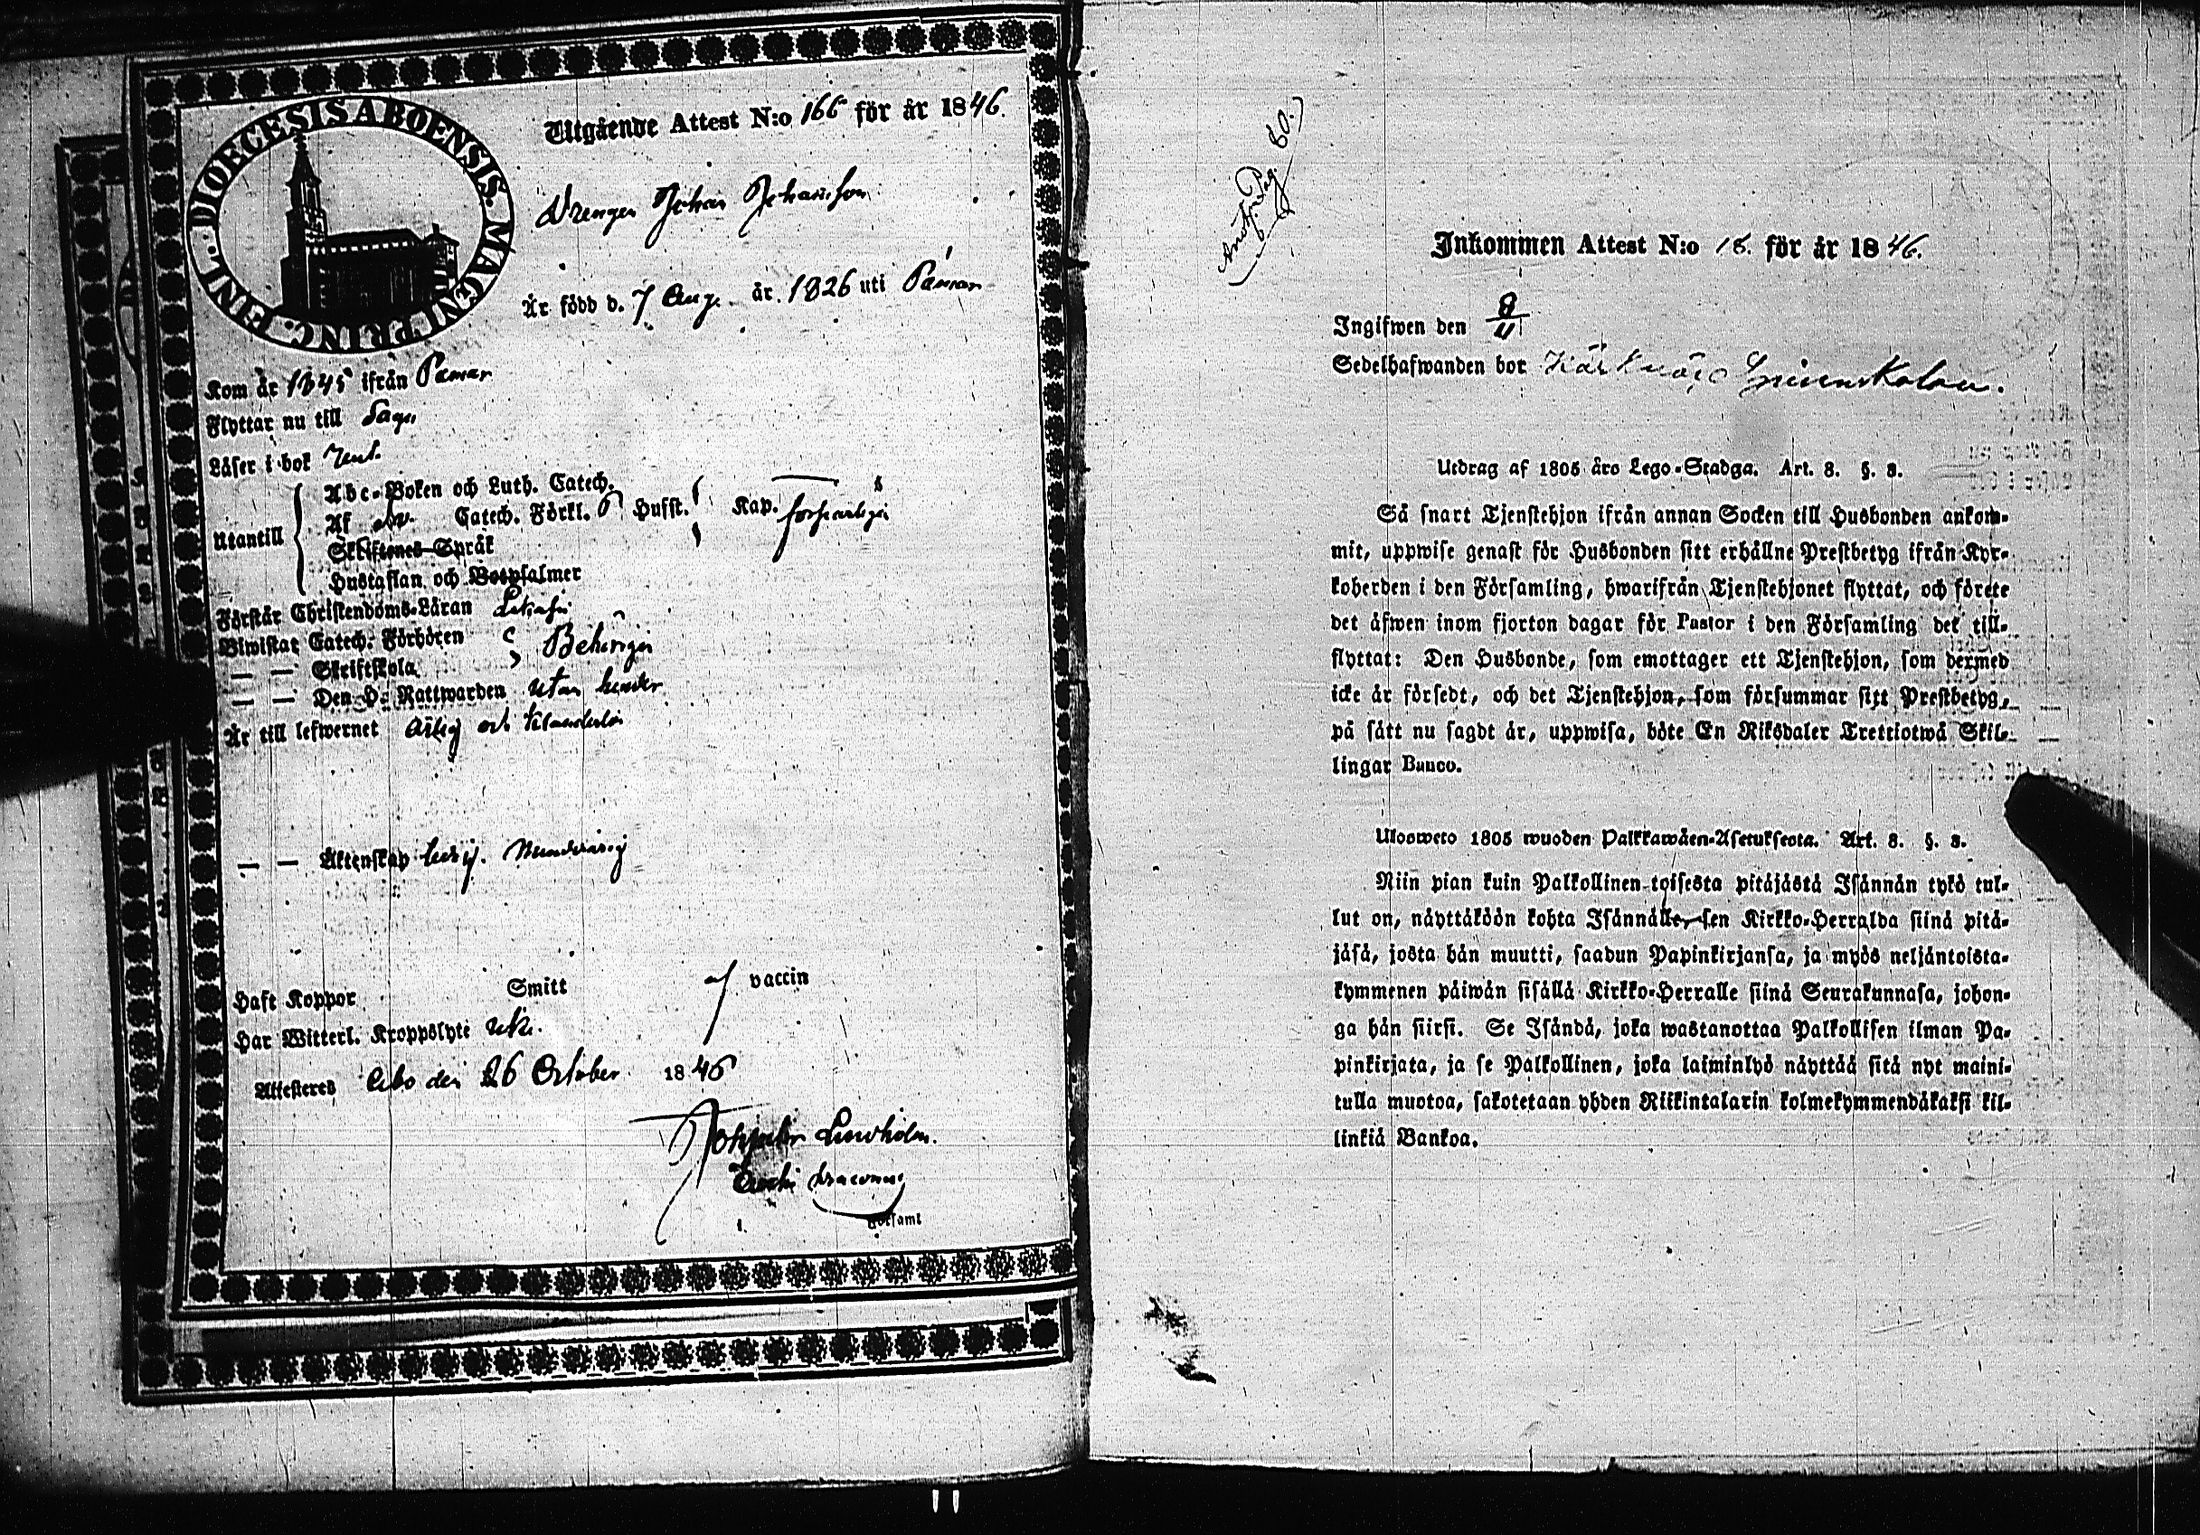 DIOECESIS ABOENSIS. MAGNI PRINC. FINL.
Utgående Attest N:o 166 för år 1846.
Drengen Johan Johansson
Är född d. 7 Aug. år 1826 uti Pämar
Kom år 1845 ifrån Pämar
Flyttar nu till Sagu
Läser i bok rent.
Utantill
Abc-Boken och Luth. Catech.
Af Catech. Förkl. Hufst. Kap.
Skriftenes-Språk
Hustaflan och Botpsalmer
Förstår Christendoms-Läran
Biwistat Catech. Förhören
— — Skriftskola Behörigen
— — Den H. Nattwarden utan hinder
Är till lefwernet ärlig och
— — Äktenskap
Haft Koppor Smitt vaccin
Har Witterl. Kroppslyte
Attesteras Åbo den 26 October 1846
Lindholm.
Församl
Anot. Pag. 60.
Inkommen Attest N:o 18. för år 1846.
Ingifwen den 8/11
Sedelhafwanden bor Kärknäs
Utdrag af 1805 års Lego-Stadga. Art. 8. §. 8.
Så snart Tjenstehjon ifrån annan Socken till Husbonden ankom-
mit, uppwise genast för Husbonden sitt erhållne Prestbetyg ifrån Kyr-
koherden i den Församling, hwarifrån Tjenstehjonet flyttat, och förete
det äfwen inom fjorton dagar för Pastor i den Församling det till-
flyttat: Den Husbonde, som emottager ett Tjenstehjon, som dermed
icke är försedt, och det Tjenstehjon, som försummar sitt Prestbetyg,
på sätt nu sagdt är, uppwisa, böte En Riksdaler Trettiotwå Skil-
lingar Banco.
Ulosweto 1805 wuoden Palkkawäen-Asetuksesta. Art. 8. §. 8.
Niin pian kuin Palkollinen toisesta pitäjästä Isännän tykö tul-
lut on, näyttäköön kohta Isännälle sen Kirkko-Herralda siinä pitä-
jäsä, josta hän muutti, saadun Papinkirjansa, ja myös neljäntoista-
kymmenen päiwän sisällä Kirkko-Herralle siinä Seurakunnasa, johon-
ga hän siirsi. Se Isändä, joka wastanottaa Palkollisen ilman Pa-
pinkirjata, ja se Palkollinen, joka laiminlyö näyttää sitä nyt maini-
tulla muotoa, sakotetaan yhden Riikintalarin kolmekymmendäkaksi kil-
linkiä Bankoa.